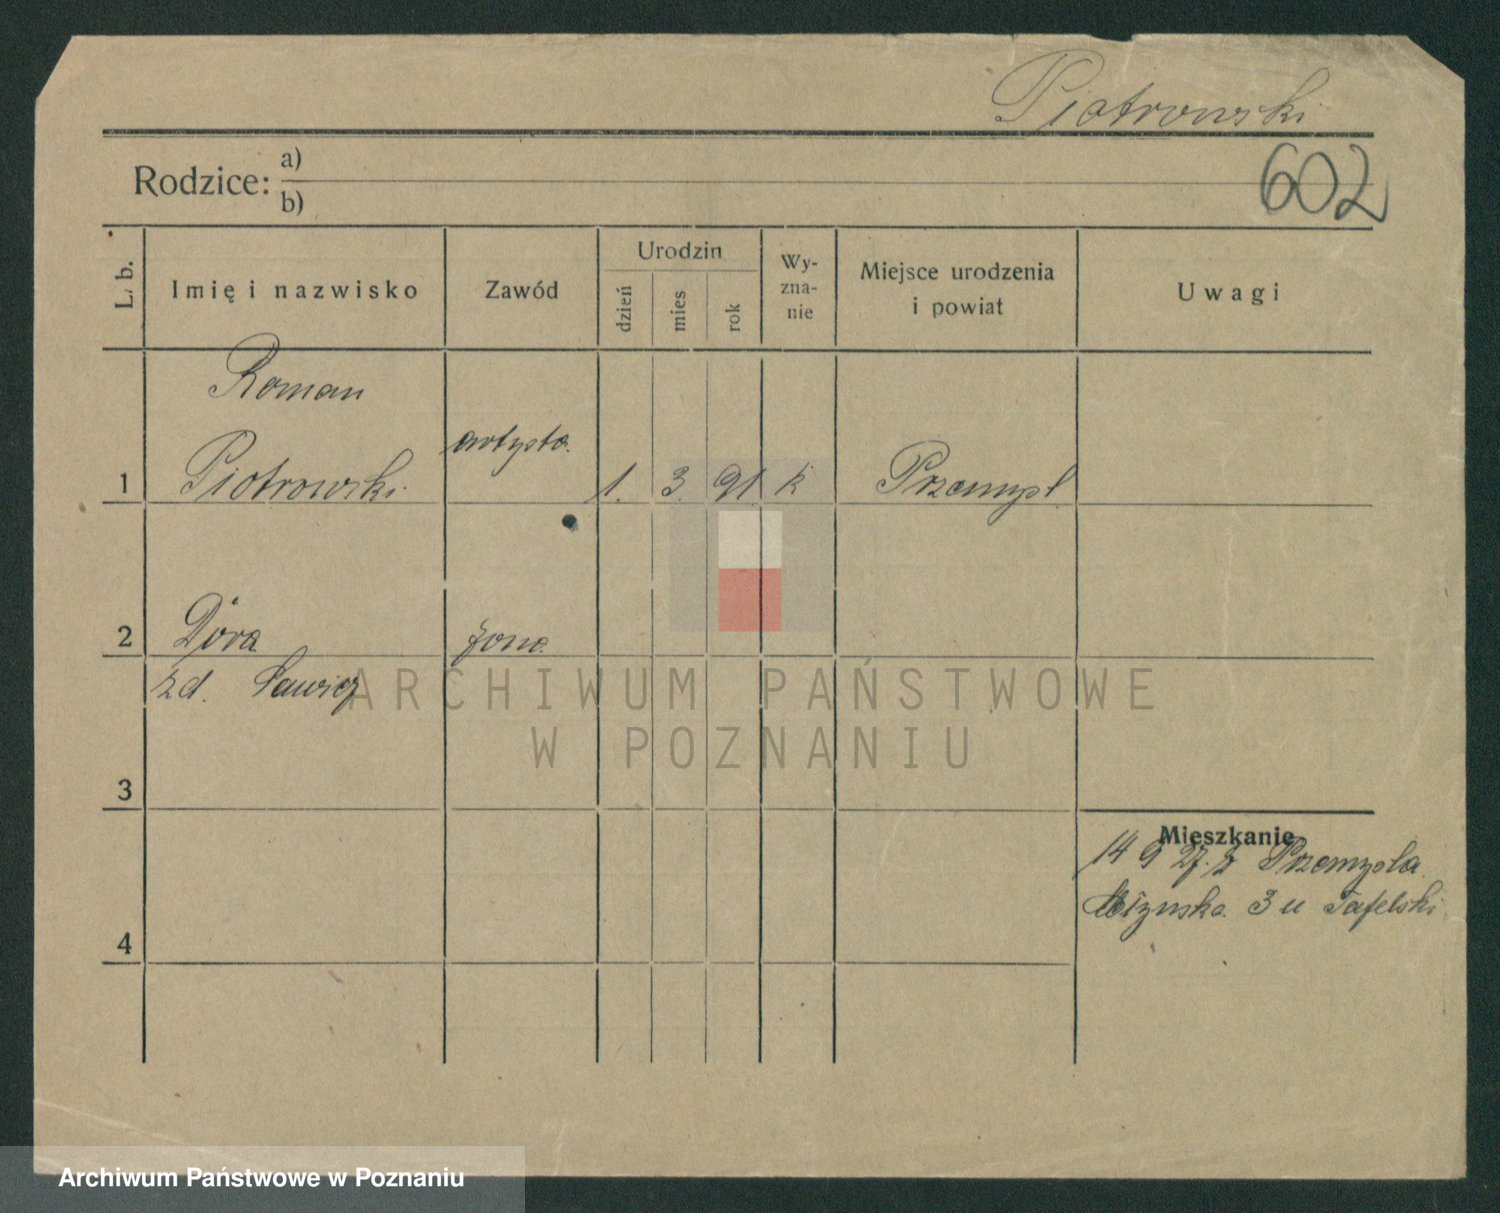 Piotrowski
602
Rodzice:
a)
b)
L. b.
Imię i nazwisko
Zawód
Urodzin
dzień
mies
rok
Wy-
zna-
nie
Miejsce urodzenia
i powiat
Uwagi
Roman
1 Piotrowski artysta. 1. 3. 91 k Przemyśl
2 Dora żona
zd. Sawicz
3
Mieszkanie
14 9 27. z Przemyśla
3 u Tafelski
4
ARCHIWUM PAŃSTWOWE
W POZNANIU
Archiwum Państwowe w Poznaniu